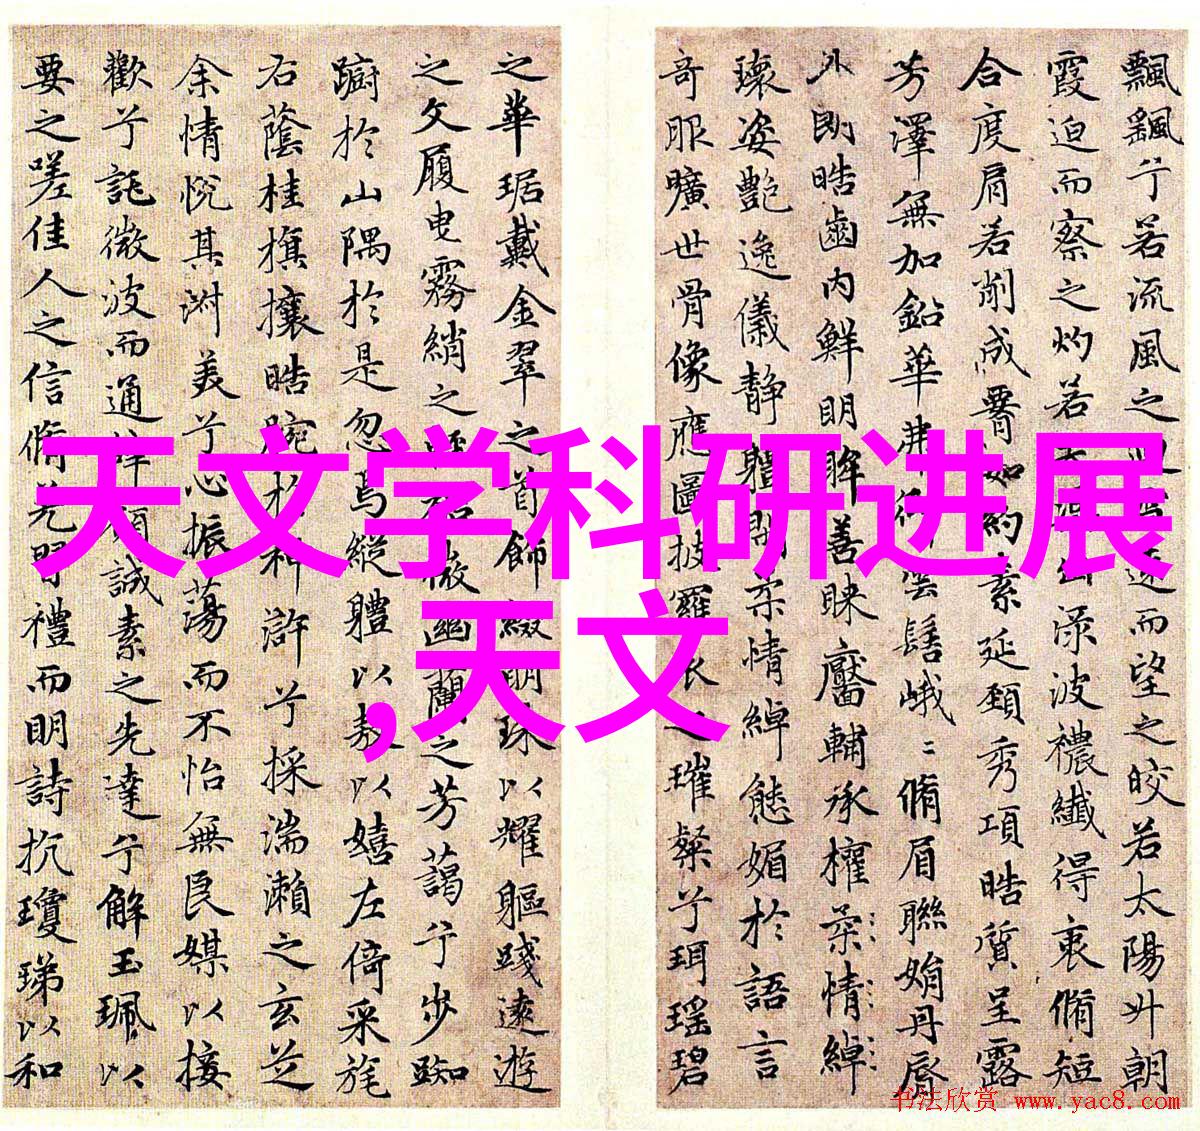 飄飖兮若流風之而望之皎若太陽升朝
霞迫而察之灼若淥波襛纖得衷脩短
合度肩若削成署如約素延頸秀項皓質呈露
芳澤無加鉛華弗雲髻峨〻脩眉聯娟丹脣
外朗皓齒内鮮明眸善睞靨輔承權柔情綽
瓌姿艷逸儀静體閑柔情綽態媚於語言
奇服曠世骨像應圖披羅衣之璀粲兮珥瑶碧
之華琚戴金翠之首飾綴明珠以耀軀踐遠遊
之文履曳霧綃之輕裾微幽蘭之芳藹兮步踟
躕於山隅於是忽焉縱體以遨以嬉左倚采旄
右蔭桂旗攘晧腕於神滸兮採湍瀨之玄芝
余情悅其淑美兮心振蕩而不怡無良媒以接
歡兮託微波而通辭願誠素之先達兮解玉珮以
要之嗟佳人之信脩羌習禮而明詩抗瓊珶以和
天文学科研进展
,天文
书法欣赏 www.yac8.com